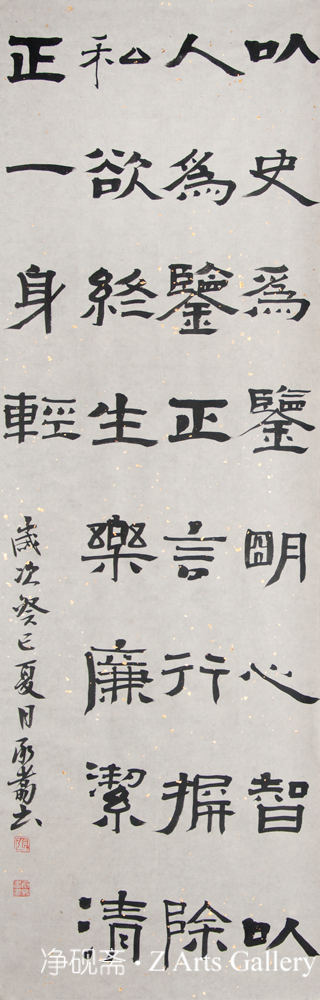 以史為鑒明心智以
人為鑒正言行摒除
私欲終生樂廉潔清
正一身輕
歲次癸巳夏月書
净砚斋·Z Arts Gallery